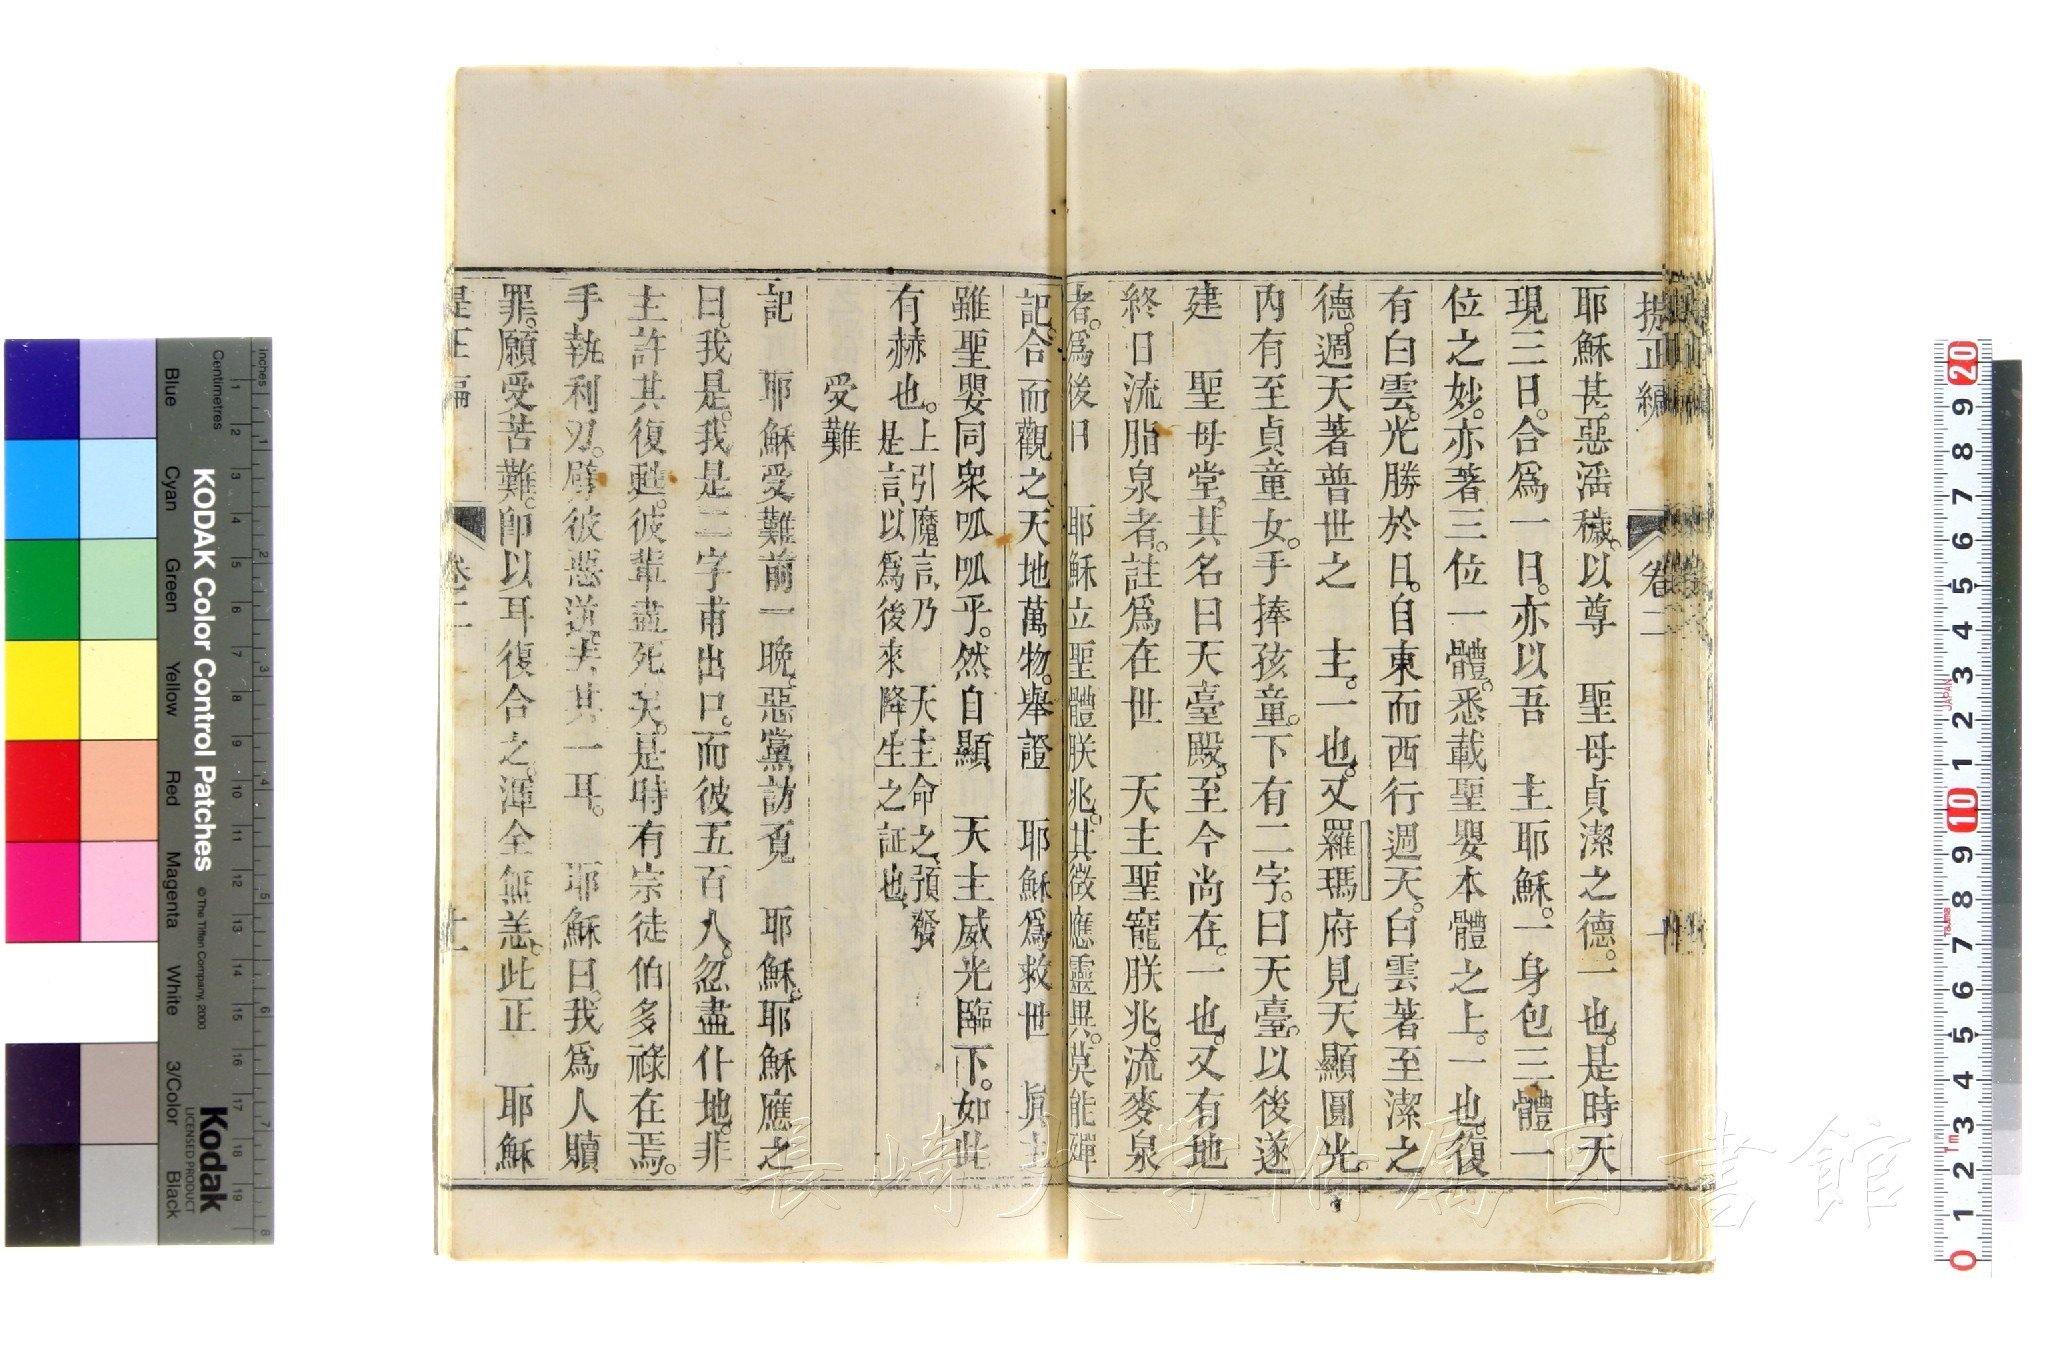 提正編 卷二
耶穌甚惡滛穢。以尊 聖母貞潔之德。一也。是時天
現三日。合爲一日。亦以吾 主耶穌。一身包三體一
位之妙。亦著三位一體。悉載聖嬰本體之上。一也。復
有白雲。光勝於日。自東而西行週天。白雲著至潔之
德。週天著普世之 主。一也。又羅瑪府見天顯圓光。
內有至貞童女。手捧孩童。下有二字。曰天臺。以後遂
建 聖母堂。其名曰天臺殿。至今尚在。一也。又有地
終日流脂泉者。註爲在世 天主聖寵朕兆。流麥泉
者。爲後日 耶穌立聖體朕兆。其徵應靈異。莫能殫
記。合而觀之、天地萬物。舉證 耶穌爲救世 眞主
雖聖嬰同衆呱呱乎。然自顯 天主威光臨下。如此
有赫也。上引魔言、乃 天主命之、預發
是言、以爲後來降生之証也、
受難
記 耶穌受難前一晚。惡黨訪覓 耶穌。耶穌應之
曰。我是。我是二字甫出口。而彼五百人。忽盡仆地。非
主許其復甦。彼輩盡死矣。是時有宗徒伯多祿在焉。
手執利刃。劈彼惡道。去其一耳。 耶穌曰。我爲人贖
罪。願受苦難。卽以耳復合之。渾全無恙。此正 耶穌
是正編 卷二 十一
長崎大学附属図書館
KODAK Color Control Patches
© The Tiffen Company, 2000
Kodak
LICENSED PRODUCT
Inches
Centimetres
Blue Cyan Green Yellow Red Magenta White 3/Color Black